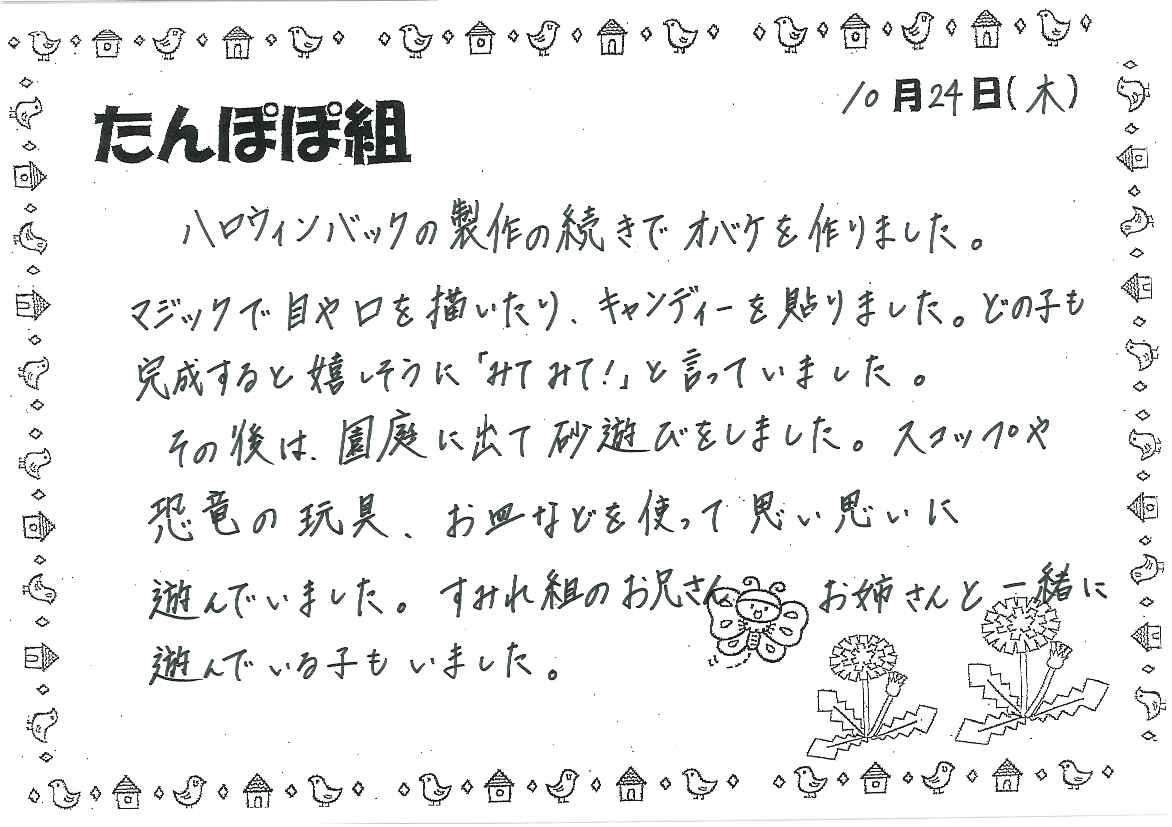 10月24日(木)
たんぽぽ組
ハロウィンバックの製作の続きでオバケを作りました。
マジックで目や口を描いたり、キャンディーを貼りました。どの子も
完成すると嬉しそうに「みてみて!」と言っていました。
その後は、園庭に出て砂遊びをしました。スコップや
恐竜の玩具、お皿などを使って思い思いに
遊んでいました。すみれ組のお兄さん お姉さんと一緒に
遊んでいる子もいました。